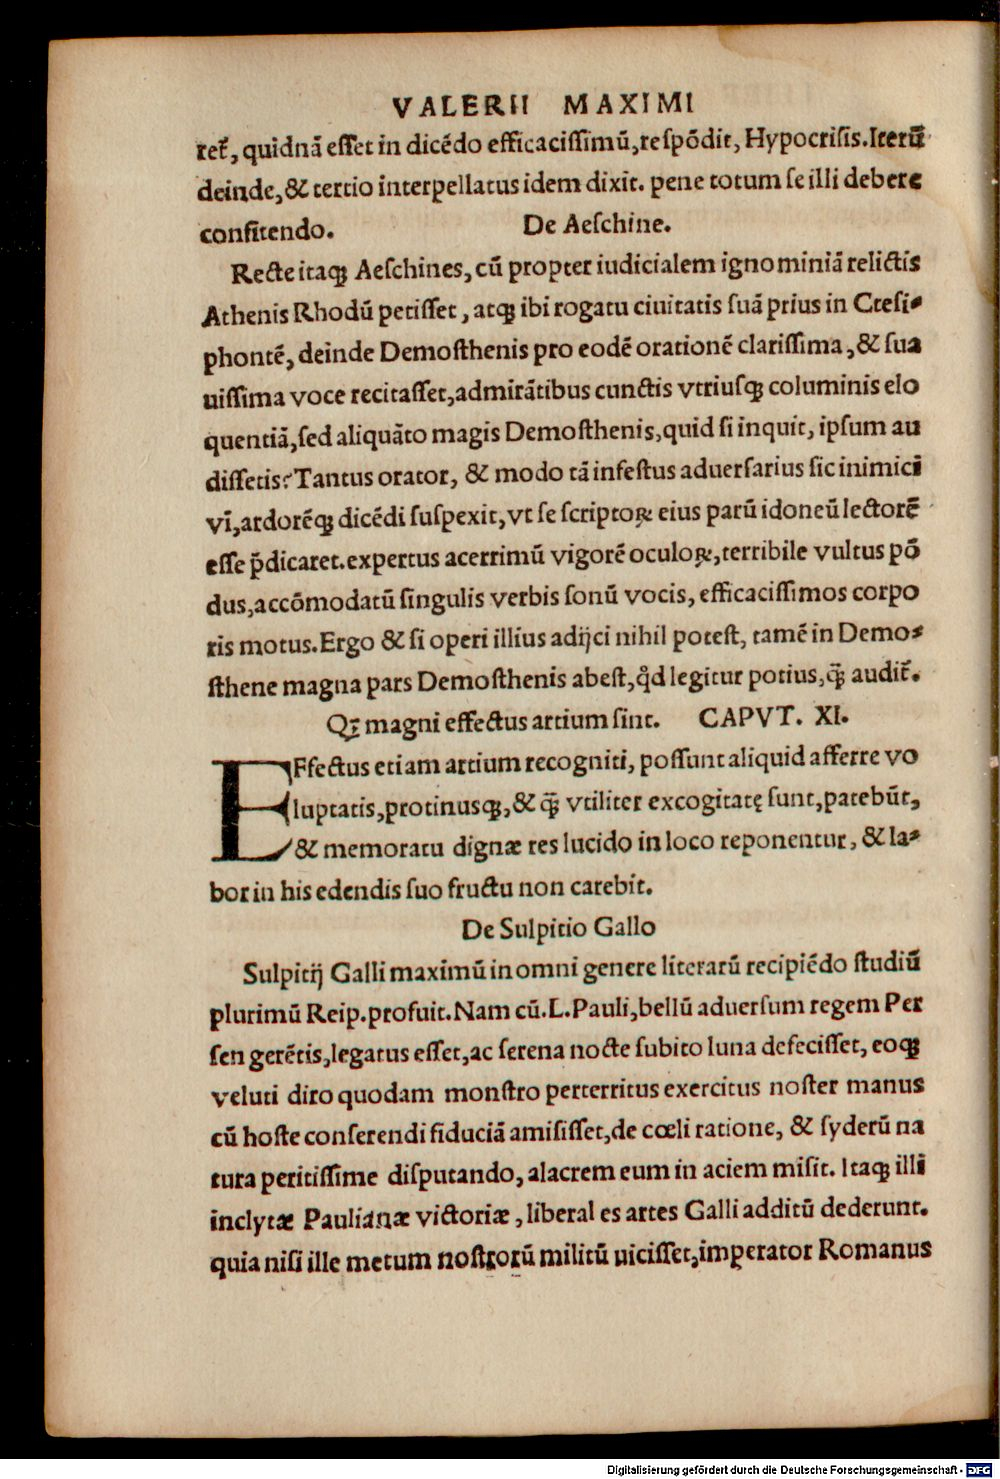 VALERII MAXIMI
ret᷒, quidnā eſſet in dicēdo efficaciſſimū, reſpōdit, Hypocriſis. Iterū
deinde, & tertio interpellatus idem dixit. pene totum ſe illi debere
confitendo. De Aeſchine.
Recte itaqꝫ Aeſchines, cū propter iudicialem ignominiā relictis
Athenis Rhodū petiſſet, atqꝫ ibi rogatu ciuitatis ſuā prius in Cteſi-
phontē, deinde Demoſthenis pro eodē orationē clariſſima, & ſua
uiſſima voce recitaſſet, admirātibus cunctis vtriuſqꝫ columinis elo
quentiā, ſed aliquāto magis Demoſthenis, quid ſi inquit, ipſum au
diſſetis? Tantus orator, & modo tā infeſtus aduerſarius ſic inimici
vī, ardorēqꝫ dicēdi ſuſpexit, vt ſe ſcriptoꝝ eius parū idoneū lectorē
eſſe p̄dicaret. expertus acerrimū vigorē oculoꝝ, terribile vultus pō
dus, accōmodatū ſingulis verbis ſonū vocis, efficaciſſimos corpo
ris motus. Ergo & ſi operi illius adijci nihil poteſt, tamē in Demo-
ſthene magna pars Demoſthenis abeſt, qd̄ legitur potius, q̄ꝫ audit᷒.
Qꝫ magni effectus artium ſint. CAPVT. XI.
EFfectus etiam artium recogniti, poſſunt aliquid afferre vo
luptatis, protinusqꝫ, & q̄ꝫ vtiliter excogitatę ſunt, patebūt,
& memoratu dignæ res lucido in loco reponentur, & la-
bor in his edendis ſuo fructu non carebit.
De Sulpitio Gallo
Sulpitij Galli maximū in omni genere literarū recipiēdo ſtudiū
plurimū Reip. profuit. Nam cū. L. Pauli, bellū aduerſum regem Per
ſen gerētis, legatus eſſet, ac ſerena nocte ſubito luna defeciſſet, eoqꝫ
veluti diro quodam monſtro perterritus exercitus noſter manus
cū hoſte conſerendi fiduciā amiſiſſet, de cœli ratione, & ſyderū na
tura peritiſſime diſputando, alacrem eum in aciem miſit. Itaqꝫ illi
inclytæ Paulianæ victoriæ, liberal es artes Galli additū dederunt.
quia niſi ille metum noſtrorū militū uiciſſet, imperator Romanus
Digitalisierung gefördert durch die Deutsche Forschungsgemeinschaft - DFG